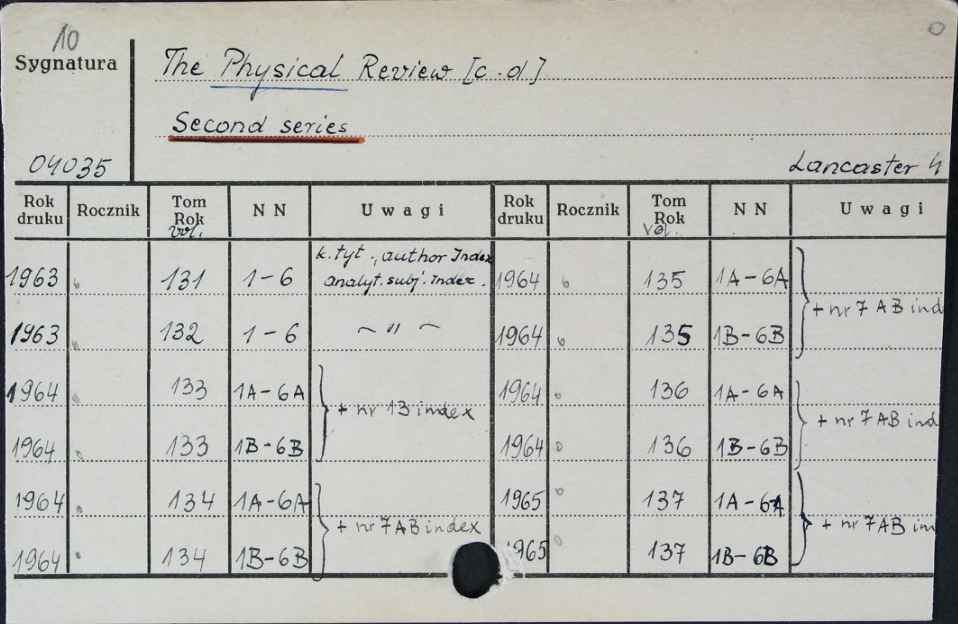 10
Sygnatura
The Physical Review [c.d]
Second series
04035
Lancaster
Rok druku Rocznik Tom Rok vol. NN Uwagi Rok druku Rocznik Tom Rok Vol. NN Uwagi
k.tyt., author Index
1963 131 1-6 analyt. subj. Index. 1964 135 1A-6A
+ nr 7 AB ind
1963 132 1-6 ~ " ~ 1964 135 1B-6B
1964 133 1A-6A 1964 136 1A-6A
+ nr 13 index + nr 7 AB ind
1964 133 1B-6B 1964 136 1B-6B
1964 134 1A-6A 1965 137 1A-6A
+ nr 7 AB index + nr 7 AB in
1964 134 1B-6B 1965 137 1B-6B